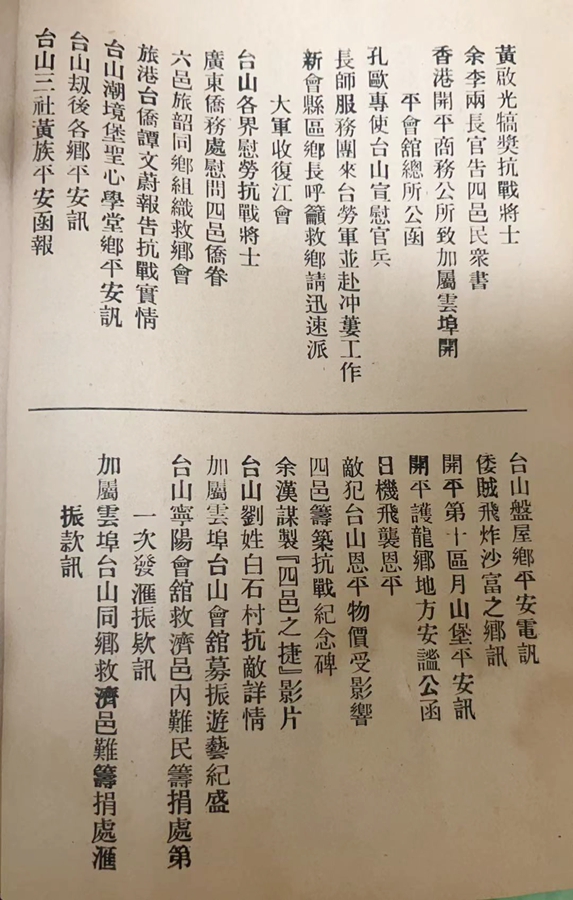 黃啟光犒獎抗戰將士
余李兩長官告四邑民衆書
香港開平商務公所致加屬雲埠開
平會舘總所公函
孔歐專使台山宣慰官兵
長師服務團來台勞軍並赴冲蔞工作
新會縣區鄉長呼籲救鄉請迅速派
大軍收復江會
台山各界慰勞抗戰將士
廣東僑務處慰問四邑僑眷
六邑旅韶同鄉組織救鄉會
旅港台僑譚文蔚報告抗戰實情
台山潮境堡聖心學堂鄉平安訊
台山刼後各鄉平安訊
台山三社黃族平安函報
台山盤屋鄉平安電訊
倭賊飛炸沙富之鄉訊
開平第十區月山堡平安訊
開平護龍鄉地方安謐公函
日機飛襲恩平
敵犯台山恩平物價受影響
四邑籌築抗戰紀念碑
余漢謀製『四邑之捷』影片
台山劉姓白石村抗敵詳情
加屬雲埠台山會舘募振遊藝紀盛
台山寧陽會舘救濟邑內難民籌捐處第
一次發滙振欵訊
加屬雲埠台山同鄉救濟邑難籌捐處滙
振款訊